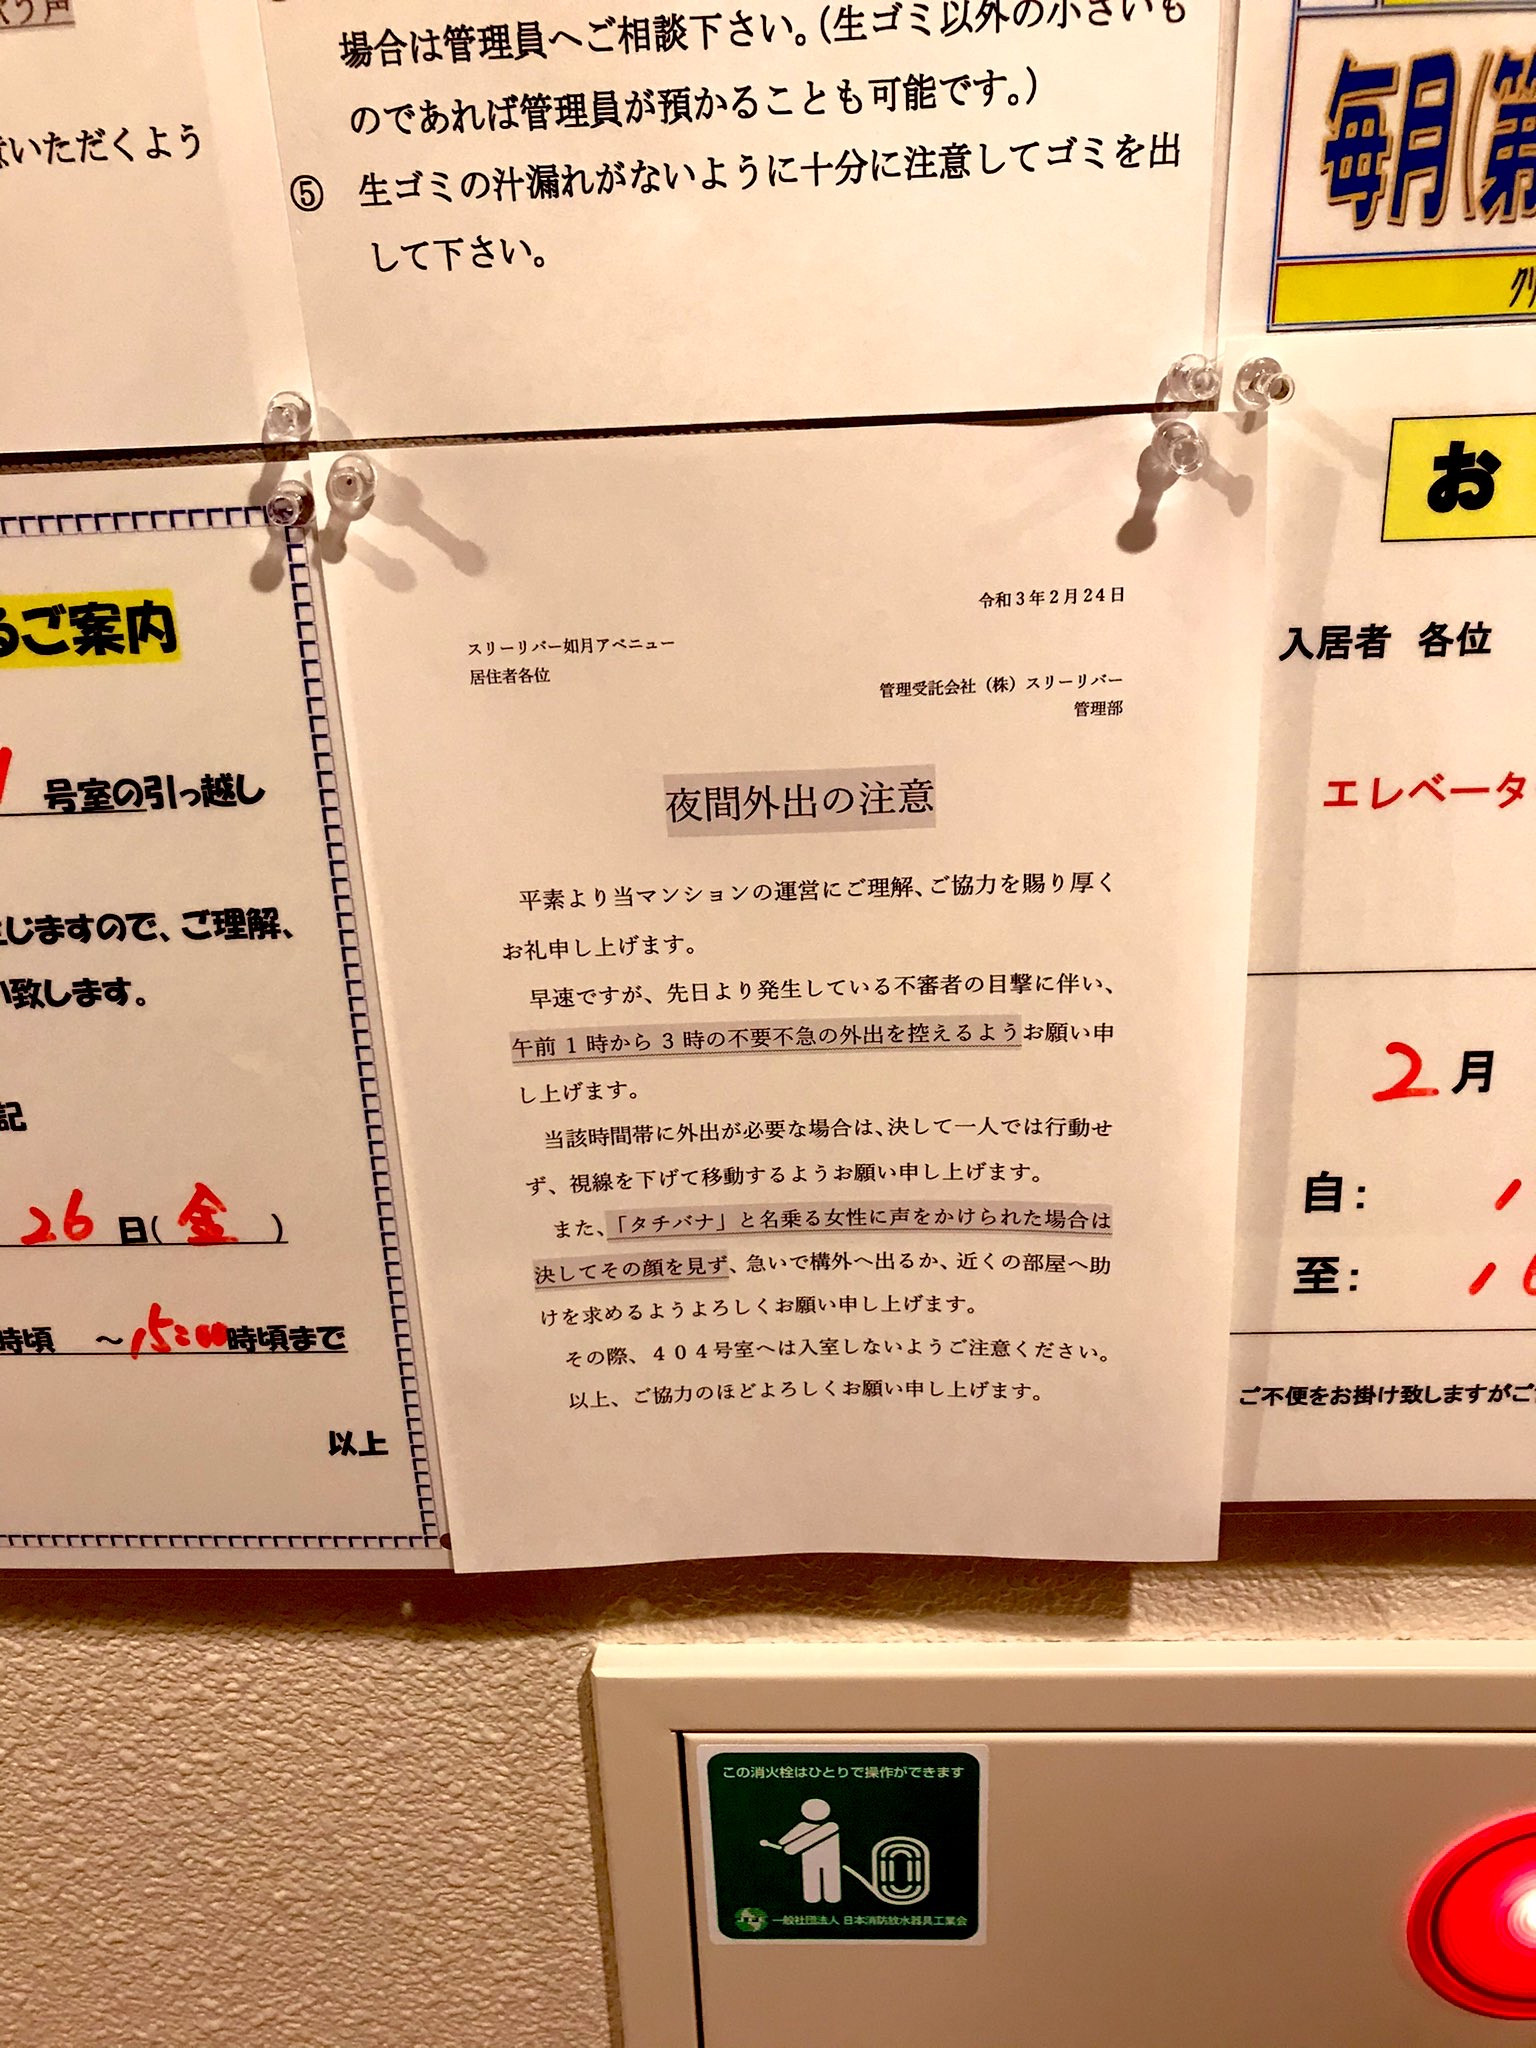 う声
いただくよう
場合は管理員へご相談下さい。(生ゴミ以外の小さいも
のであれば管理員が預かることも可能です。)
⑤ 生ゴミの汁漏れがないように十分に注意してゴミを出
して下さい。
毎月(第
クリ
るご案内
号室の引っ越し
じますので、ご理解、
致します。
記
26日(金)
時頃 ～15:00時頃まで
以上
令和3年2月24日
スリーリバー如月アベニュー
居住者各位
管理受託会社（株）スリーリバー
管理部
夜間外出の注意
平素より当マンションの運営にご理解、ご協力を賜り厚く
お礼申し上げます。
早速ですが、先日より発生している不審者の目撃に伴い、
午前1時から3時の不要不急の外出を控えるようお願い申
し上げます。
当該時間帯に外出が必要な場合は、決して一人では行動せ
ず、視線を下げて移動するようお願い申し上げます。
また、「タチバナ」と名乗る女性に声をかけられた場合は
決してその顔を見ず、急いで構外へ出るか、近くの部屋へ助
けを求めるようよろしくお願い申し上げます。
その際、404号室へは入室しないようご注意ください。
以上、ご協力のほどよろしくお願い申し上げます。
お
入居者 各位
エレベータ
2月
自：
至：
ご不便をお掛け致しますがご
この消火栓はひとりで操作ができます
一般社団法人 日本消防放水器具工業会